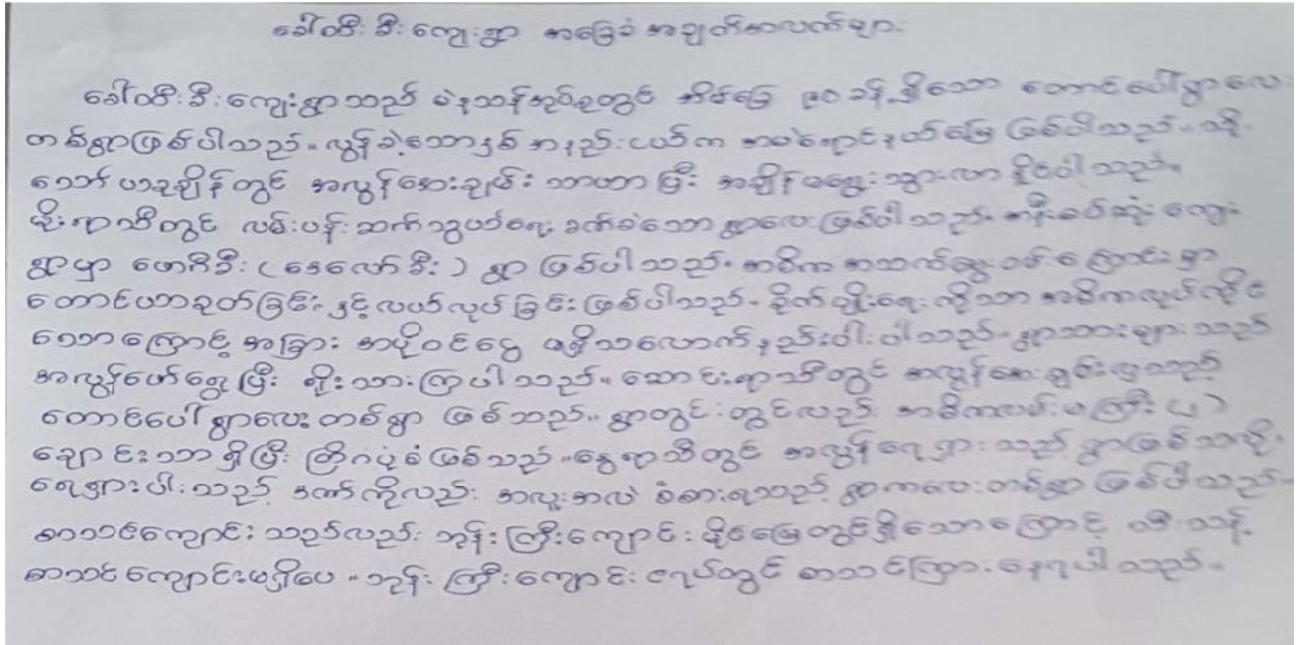 ခေါ်ထီးခီးကျေးရွာ အခြေခံ အချက်အလက်များ
ခေါ်ထီးခီးကျေးရွာသည် မဲနသန်အုပ်စုတွင် အိမ်ခြေ ၃၀ ခန့်ရှိသော တောင်ပေါ်ရွာလေး
တစ်ရွာဖြစ်ပါသည်။ လွန်ခဲ့သောနှစ် အနည်းငယ်က အမဲရောင်နယ်မြေ ဖြစ်ပါသည်။ သို့
သော် ယခုချိန်တွင် အလွန်အေးချမ်း သာယာပြီး အချိန်မရွေးသွားလာ နိုင်ပါသည်။
မိုးရာသီတွင် လမ်းပန်းဆက်သွယ်ရေး ခက်ခဲသော ရွာလေးဖြစ်ပါသည်။ အနီးစပ်ဆုံး ကျေး
ရွာမှာ ဖောဂိခီး ( ဒေလော်ခီး ) ရွာ ဖြစ်ပါသည်။ အဓိက အသက်မွေးဝမ်းကြောင်းမှာ
တောင်ယာခုတ်ခြင်း နှင့် လယ်လုပ်ခြင်းဖြစ်ပါသည်။ စိုက်ပျိုးရေးကိုသာ အဓိကလုပ်ကိုင်
သောကြောင့် အခြား အပိုဝင်ငွေ မရှိသလောက်နည်းပါးပါသည်။ ရွာသားများသည်
အလွန်ဖော်ရွေပြီး ရိုးသားကြပါသည်။ ဆောင်းရာသီတွင် အလွန်အေးချမ်းလှသည့်
တောင်ပေါ်ရွာလေးတစ်ရွာ ဖြစ်သည်။ ရွာတွင်းတွင်လည်း အဓိကလမ်းမကြီး (၂)
ချောင်းသာ ရှိပြီး တြိဂံပုံစံဖြစ်သည်။ နွေရာသီတွင် အလွန်ရေရှားသည့် ရွာဖြစ်သလို
ရေရှားပါးသည့် ဒဏ်ကိုလည်း အလူးအလဲ ခံစားရသည့် ရွာကလေးတစ်ရွာ ဖြစ်ပါသည်။
စာသင်ကျောင်းသည်လည်း ဘုန်းကြီးကျောင်းပိုင်မြေတွင်ရှိသောကြောင့် သီးသန့်
စာသင်ကျောင်းမရှိပေ။ ဘုန်းကြီးကျောင်းဇရပ်တွင် စာသင်ကြားနေရပါသည်။